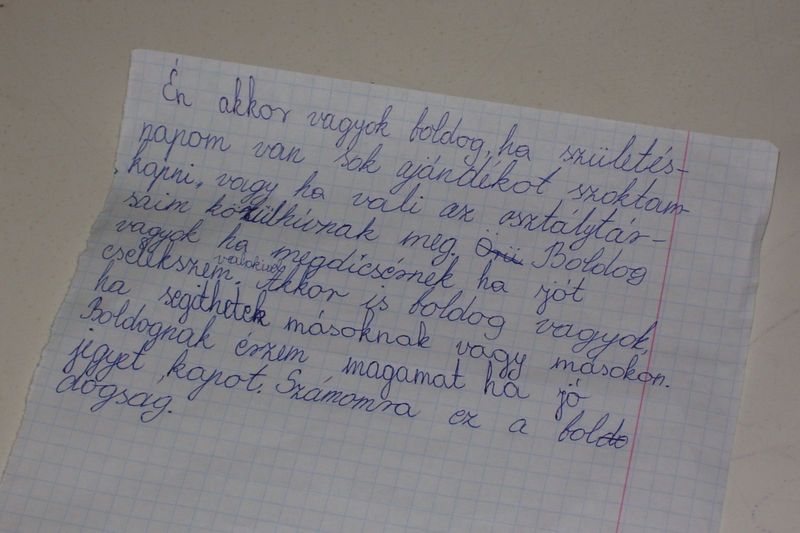 Én akkor vagyok boldog, ha születés-
napom van sok ajándékot szoktam
kapni, vagy ha vali az osztálytár-
saim közülhívnak meg. Örü Boldog
vagyok ha megdicsérnek ha jót
cselekszem. valakivel Akkor is boldog vagyok
ha segíthetek másoknak vagy másokon.
Boldognak érzem magamat ha jó
jegyet kapot. Számomra ez a boldo
dogság.